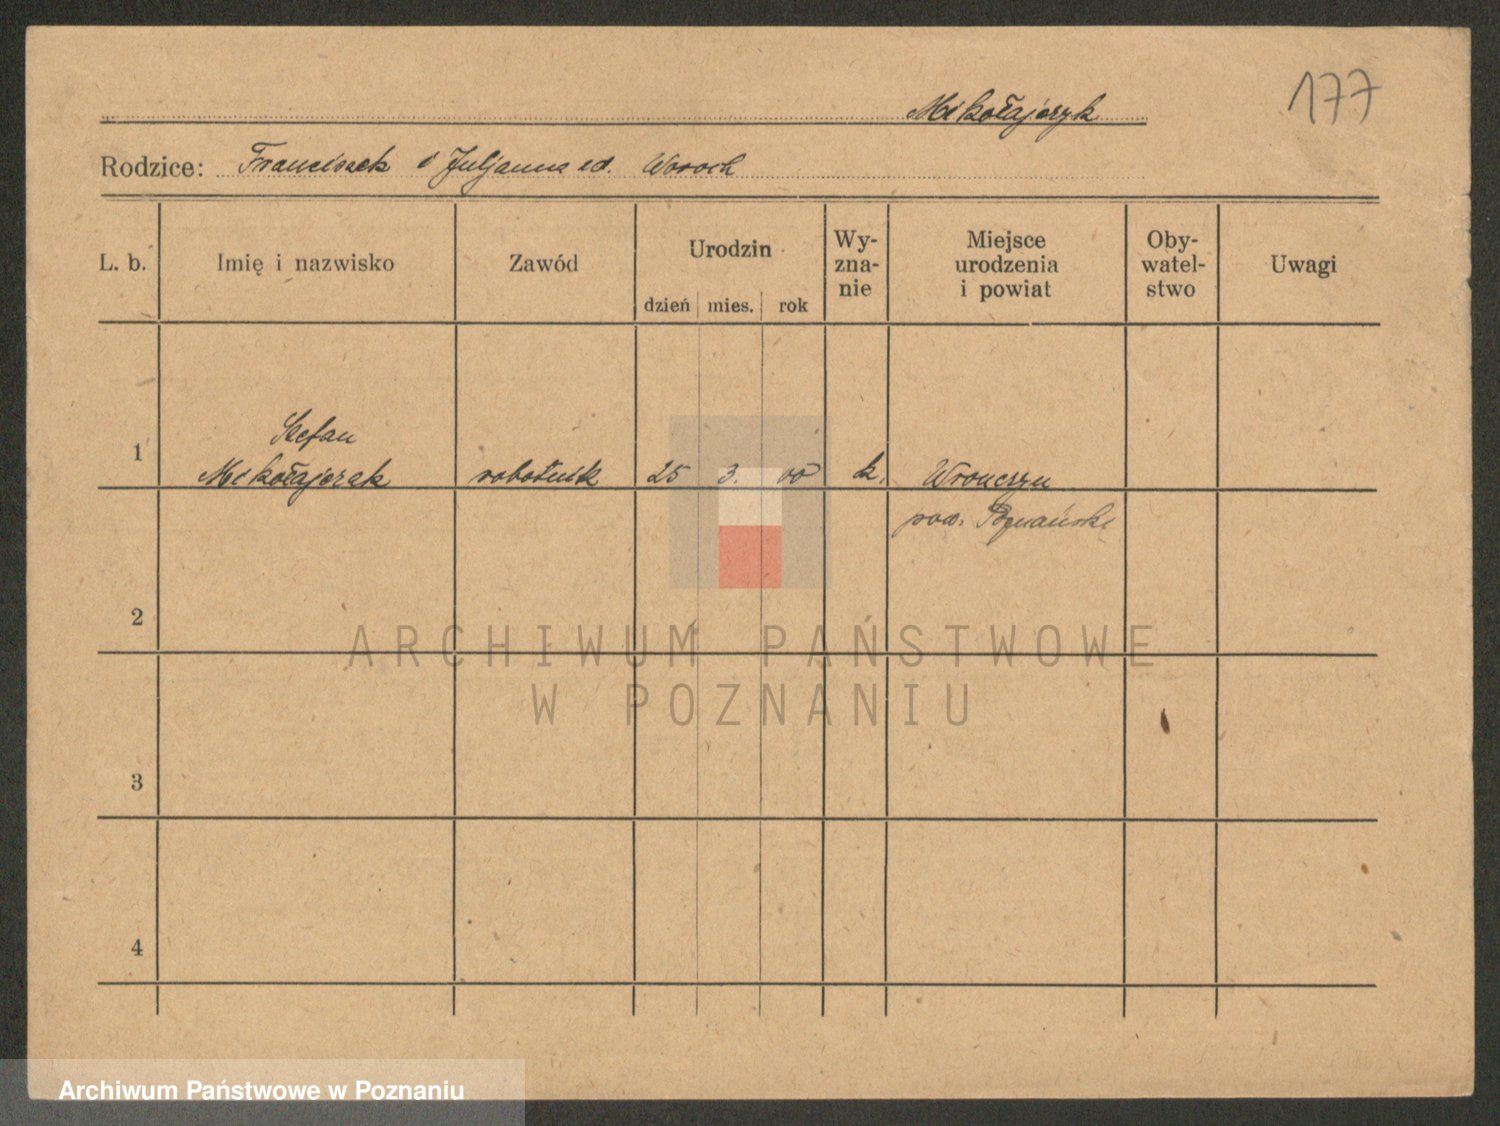 177
Mikołajczyk
Rodzice: Franciszek i Juljanna zd. Woroch
L. b. Imię i nazwisko Zawód Urodzin dzień mies. rok Wy-zna-nie Miejsce urodzenia i powiat Oby-watel-stwo Uwagi
1 Stefan
Mikołajczak robotnik 25 3. 00 k. Wronczyn
pow. Poznański
2
3
4
ARCHIWUM PAŃSTWOWE
W POZNANIU
Archiwum Państwowe w Poznaniu